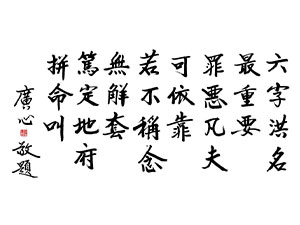 六字洪名
最重要
罪惡凡夫
可依靠
若不稱念
無解套
篤定地府
拼命叫
廣心敬題